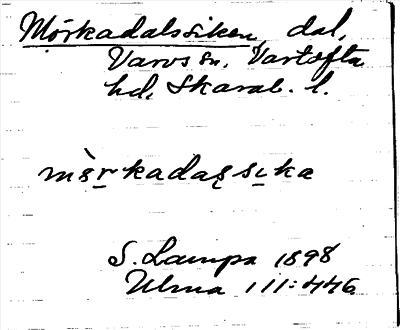 Mörkadalssiken, dal,
Varvs sn, Vartofta
hd, Skarab. l.
mèr̲kadaʂsɩ̲ka
S. Lampa 1898
Ulma 111:446